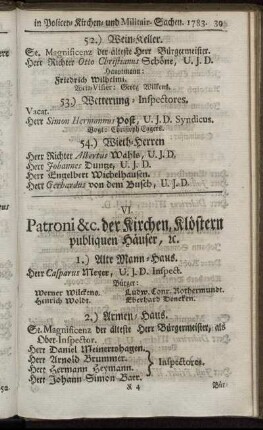 in Policey- Kirchen- und Militair- Sachen. 1783. 39
52.) Wein-Keller.
Se. Magnificenz der älteste Herr Bürgermeister.
Herr Richter Otto Christianus Schöne, U. J. D.
Hauptmann:
Friedrich Wilhelmi.
Wein-Visier: Georg Wilkens.
53.) Wetterung-Inspectores.
Vacat.
Herr Simon Hermannus Post, U. J. D. Syndicus.
Vogt: Christoph Eggers.
54.) Wieth-Herren
Herr Richter Albertus Wahls, U. J. D.
Herr Johannes Duntze, U. J. D.
Herr Engelbert Wichelhausen.
Herr Gerhardus von dem Busch, U. J. D.
VI.
Patroni &c. der Kirchen, Klöstern
publiquen Häuser, ꝛc.
1.) Alte Mann-Haus.
Herr Casparus Meyer, U. J. D. Inspect.
Bürger:
Werner Wilckens. Ludw. Conr. Rothermundt.
Hinrich Woldt. Eberhard Doneken.
2.) Armen-Haus.
Se. Magnificenz der älteste Herr Bürgermeister, als
Ober-Inspector.
Herr Daniel Meinertzhagen.
Herr Arnold Brummer.
Herr Hermann Heymann. Inspectores.
Herr Johann Simon Baer.
K 4 Bür-